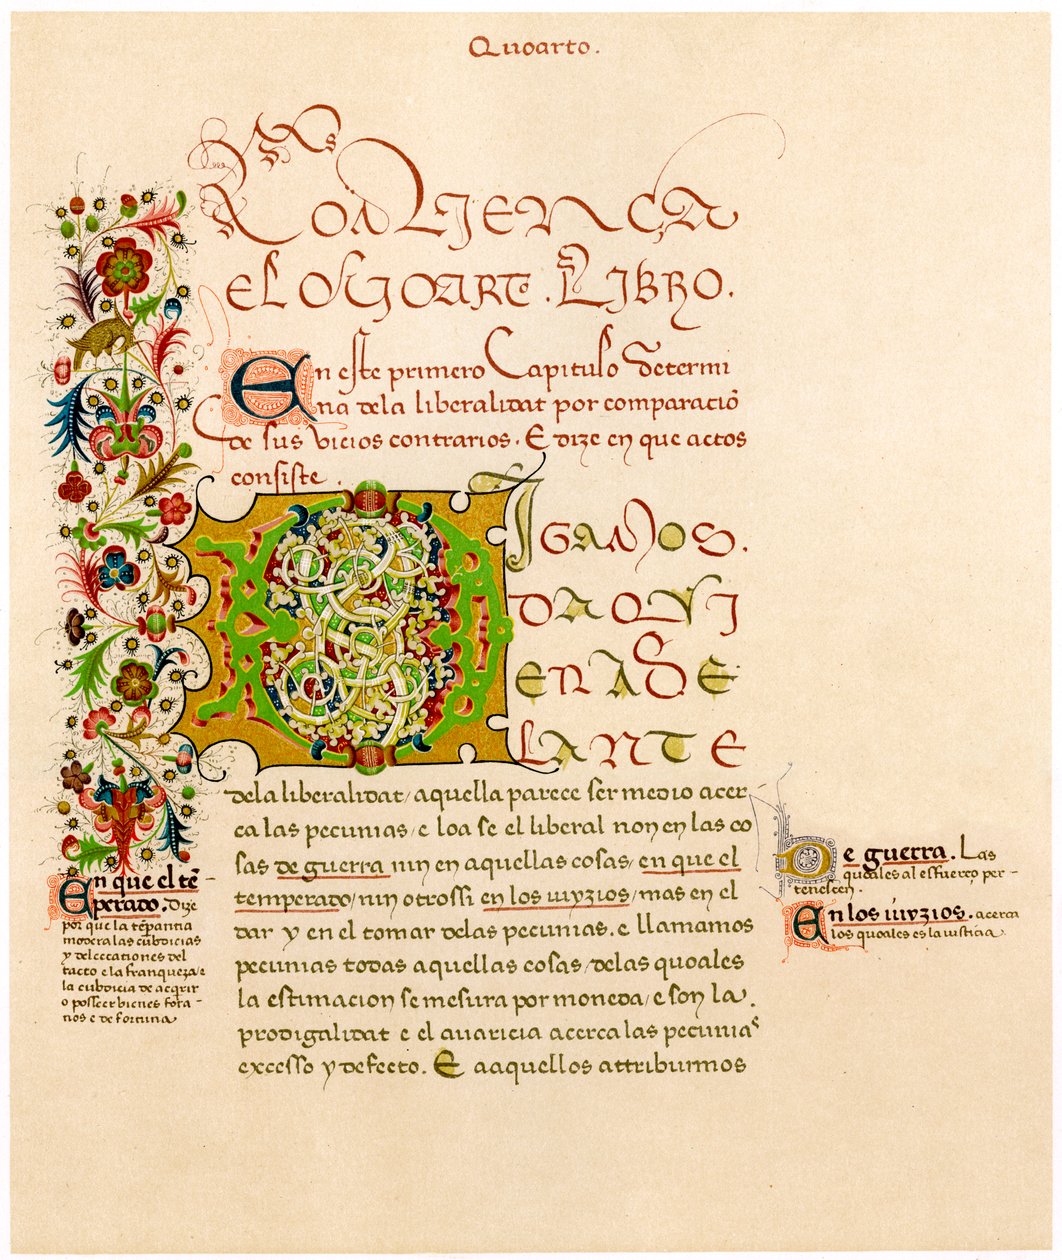 Quoarto.
Comiença
el quoarto Libro.
En este primero Capitulo determi
na dela liberalidat por comparació
de sus vicios contrarios. E dize en que actos
consiste.
Digamos.
daqui
enade
lante
dela liberalidat/aquella parece ser medio acer-
ca las pecunias/e loa se el liberal non en las co
sas de guerra nin en aquellas cosas/en que el
temperado/nin otrossi en los iuyzios/mas en el
dar y en el tomar delas pecunias. e llamamos
pecunias todas aquellas cosas/delas quoales
la estimacion se mesura por moneda/e son la.
prodigalidat e el auaricia acerca las pecunias
excesso y defecto. E aaquellos attribuimos
En que el té-
perado. Dize
por que la téprantia
modera las cubdicias
y delectationes del
tacto e la franqueza/e
la cubdicia de acqrir
o posseer bienes fora-
nos e de fortuna
De guerra. Las
quoales al esfuerço per-
tenescen.
En los iuyzios. acerca
los quoales es la iusticia.